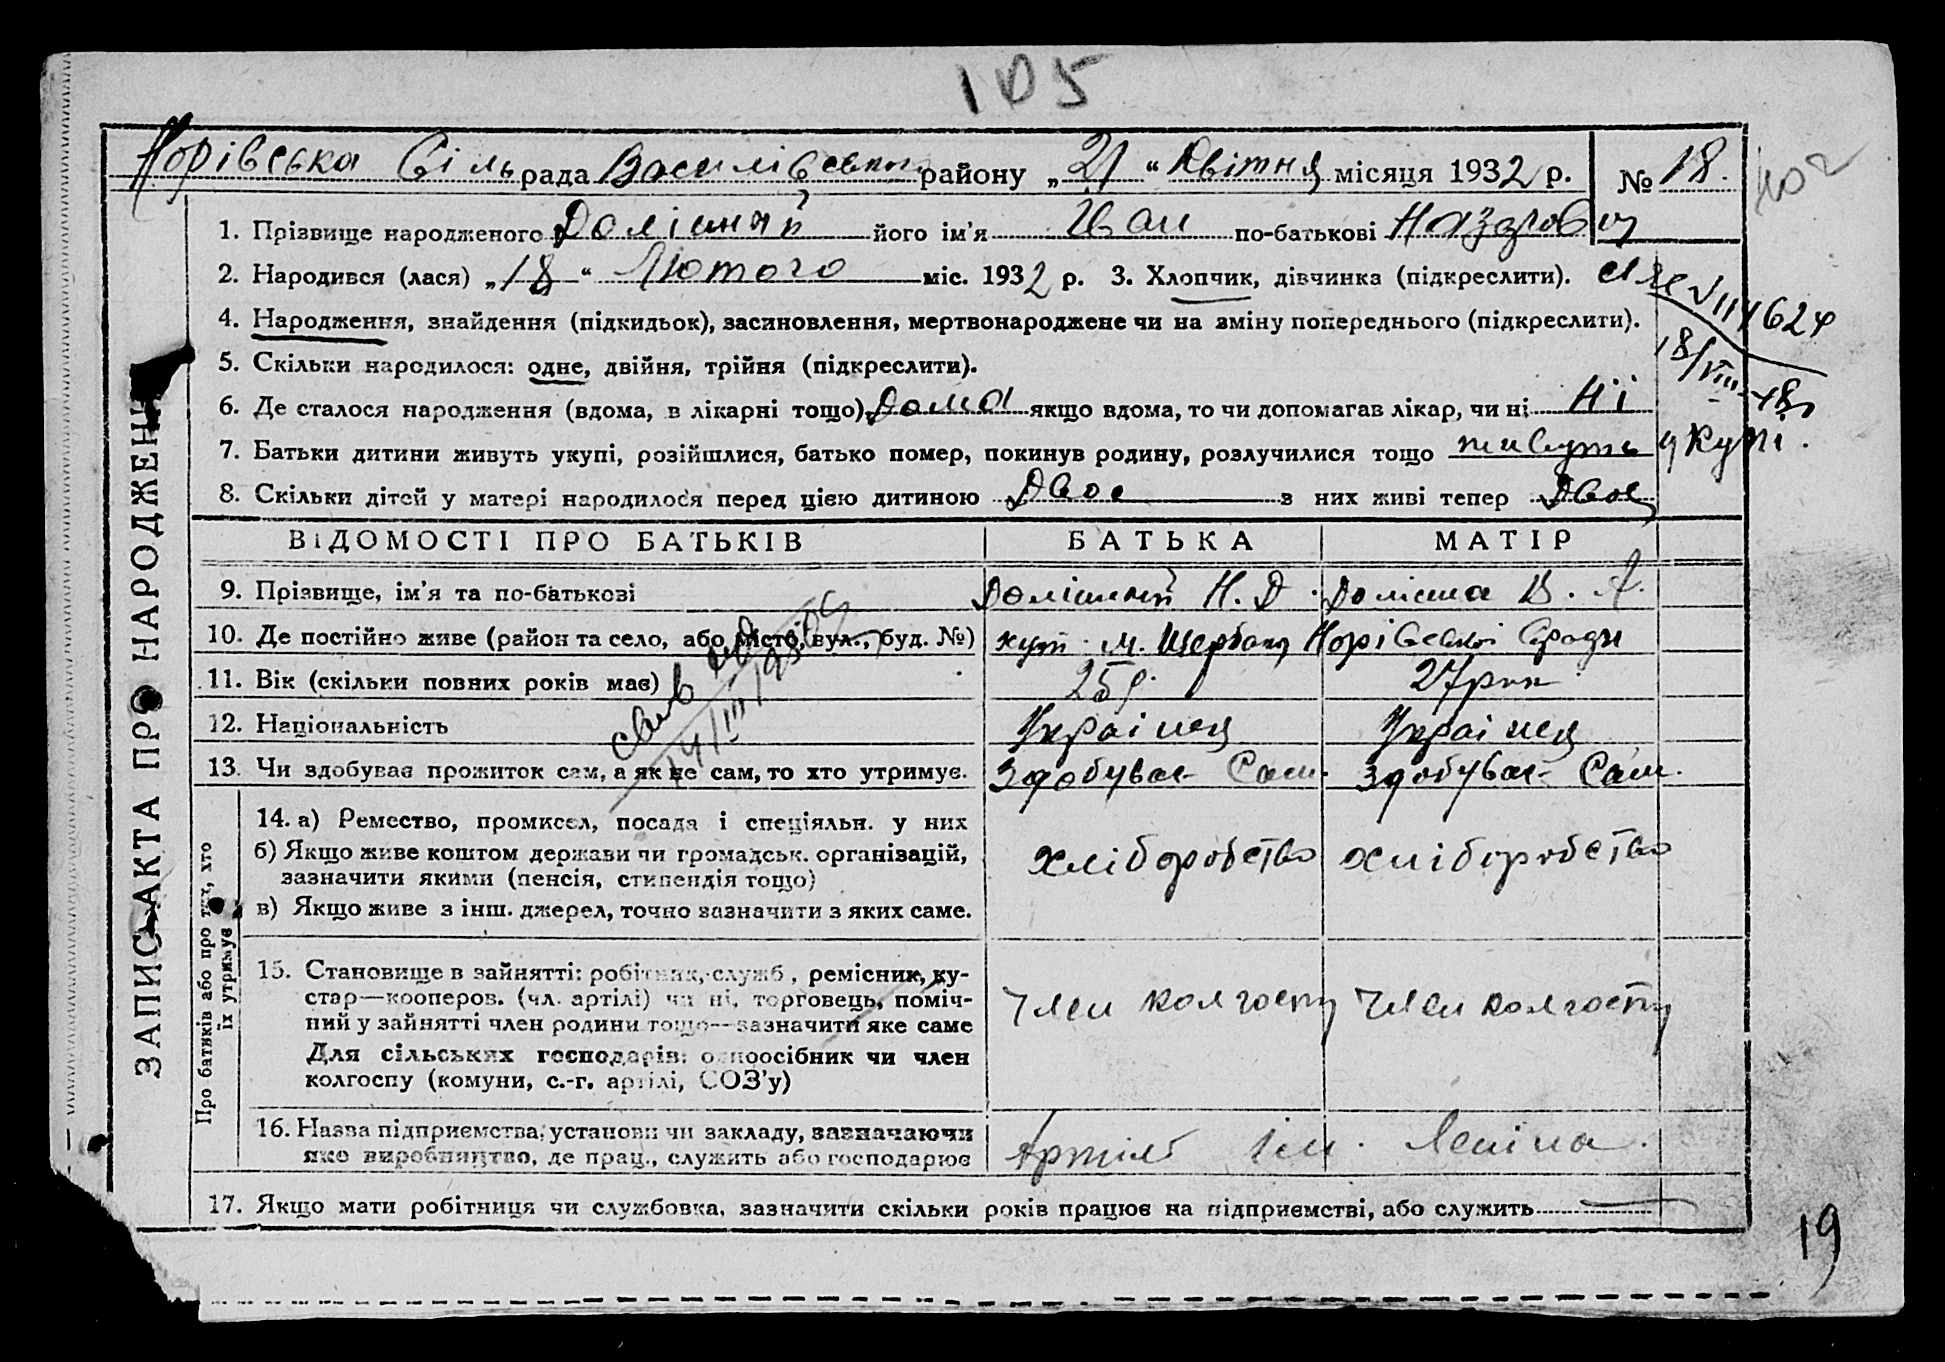 105
Норівська Сільрада Василівського району „21“ Квітня місяця 1932 р. № 18.
1. Прізвище народженого Долішній його ім'я Іван по-батькові Назарович
2. Народився (лася) „18“ Лютого міс. 1932 р. 3. Хлопчик, дівчинка (підкреслити).
4. Народження, знайдення (підкидьок), засиновлення, мертвонароджене чи на зміну попереднього (підкреслити).
5. Скільки народилося: одне, двійня, трійня (підкреслити).
6. Де сталося народження (вдома, в лікарні тощо) Дома якщо вдома, то чи допомагав лікар, чи ні Ні
7. Батьки дитини живуть укупі, розійшлися, батько помер, покинув родину, розлучилися тощо живуть укупі.
8. Скільки дітей у матері народилося перед цією дитиною Двоє з них живі тепер Двоє
ЗАПИС АКТА ПРО НАРОДЖЕННЯ
ВІДОМОСТІ ПРО БАТЬКІВ БАТЬКА МАТІР
9. Прізвище, ім'я та по-батькові Долішній Н. Д. Долішна В. А.
10. Де постійно живе (район та село, або місто, вул., буд. №) хут. М. Щербани Норівської Сради
11. Вік (скільки повних років має) 25 р. 27 рок
12. Національність Українец Українец
13. Чи здобуває прожиток сам, а як не сам, то хто утримує. Здобуває Сам. Здобуває Сам.
Про батьків або про тих, хто їх утримує
14. а) Ремество, промисел, посада і спеціяльн. у них
б) Якщо живе коштом держави чи громадськ. організацій,
зазначити якими (пенсія, стипендія тощо)
хліборобство хліборобство
в) Якщо живе з інш. джерел, точно зазначити з яких саме.
15. Становище в зайнятті: робітник, служб., ремісник, ку-
стар—кооперов. (чл. артілі) чи ні, торговець, поміч-
ний у зайнятті член родини тощо—зазначити яке саме
Член колгоспу Член колгоспу
Для сільських господарів: одноосібник чи член
колгоспу (комуни, с.-г. артілі, СОЗ'у)
16. Назва підприємства, установи чи закладу, зазначаючи
яке виробництво, де прац., служить або господарює
Артіль Ім. Леніна.
17. Якщо мати робітниця чи службовка, зазначити скільки років працює на підприємстві, або служить
19